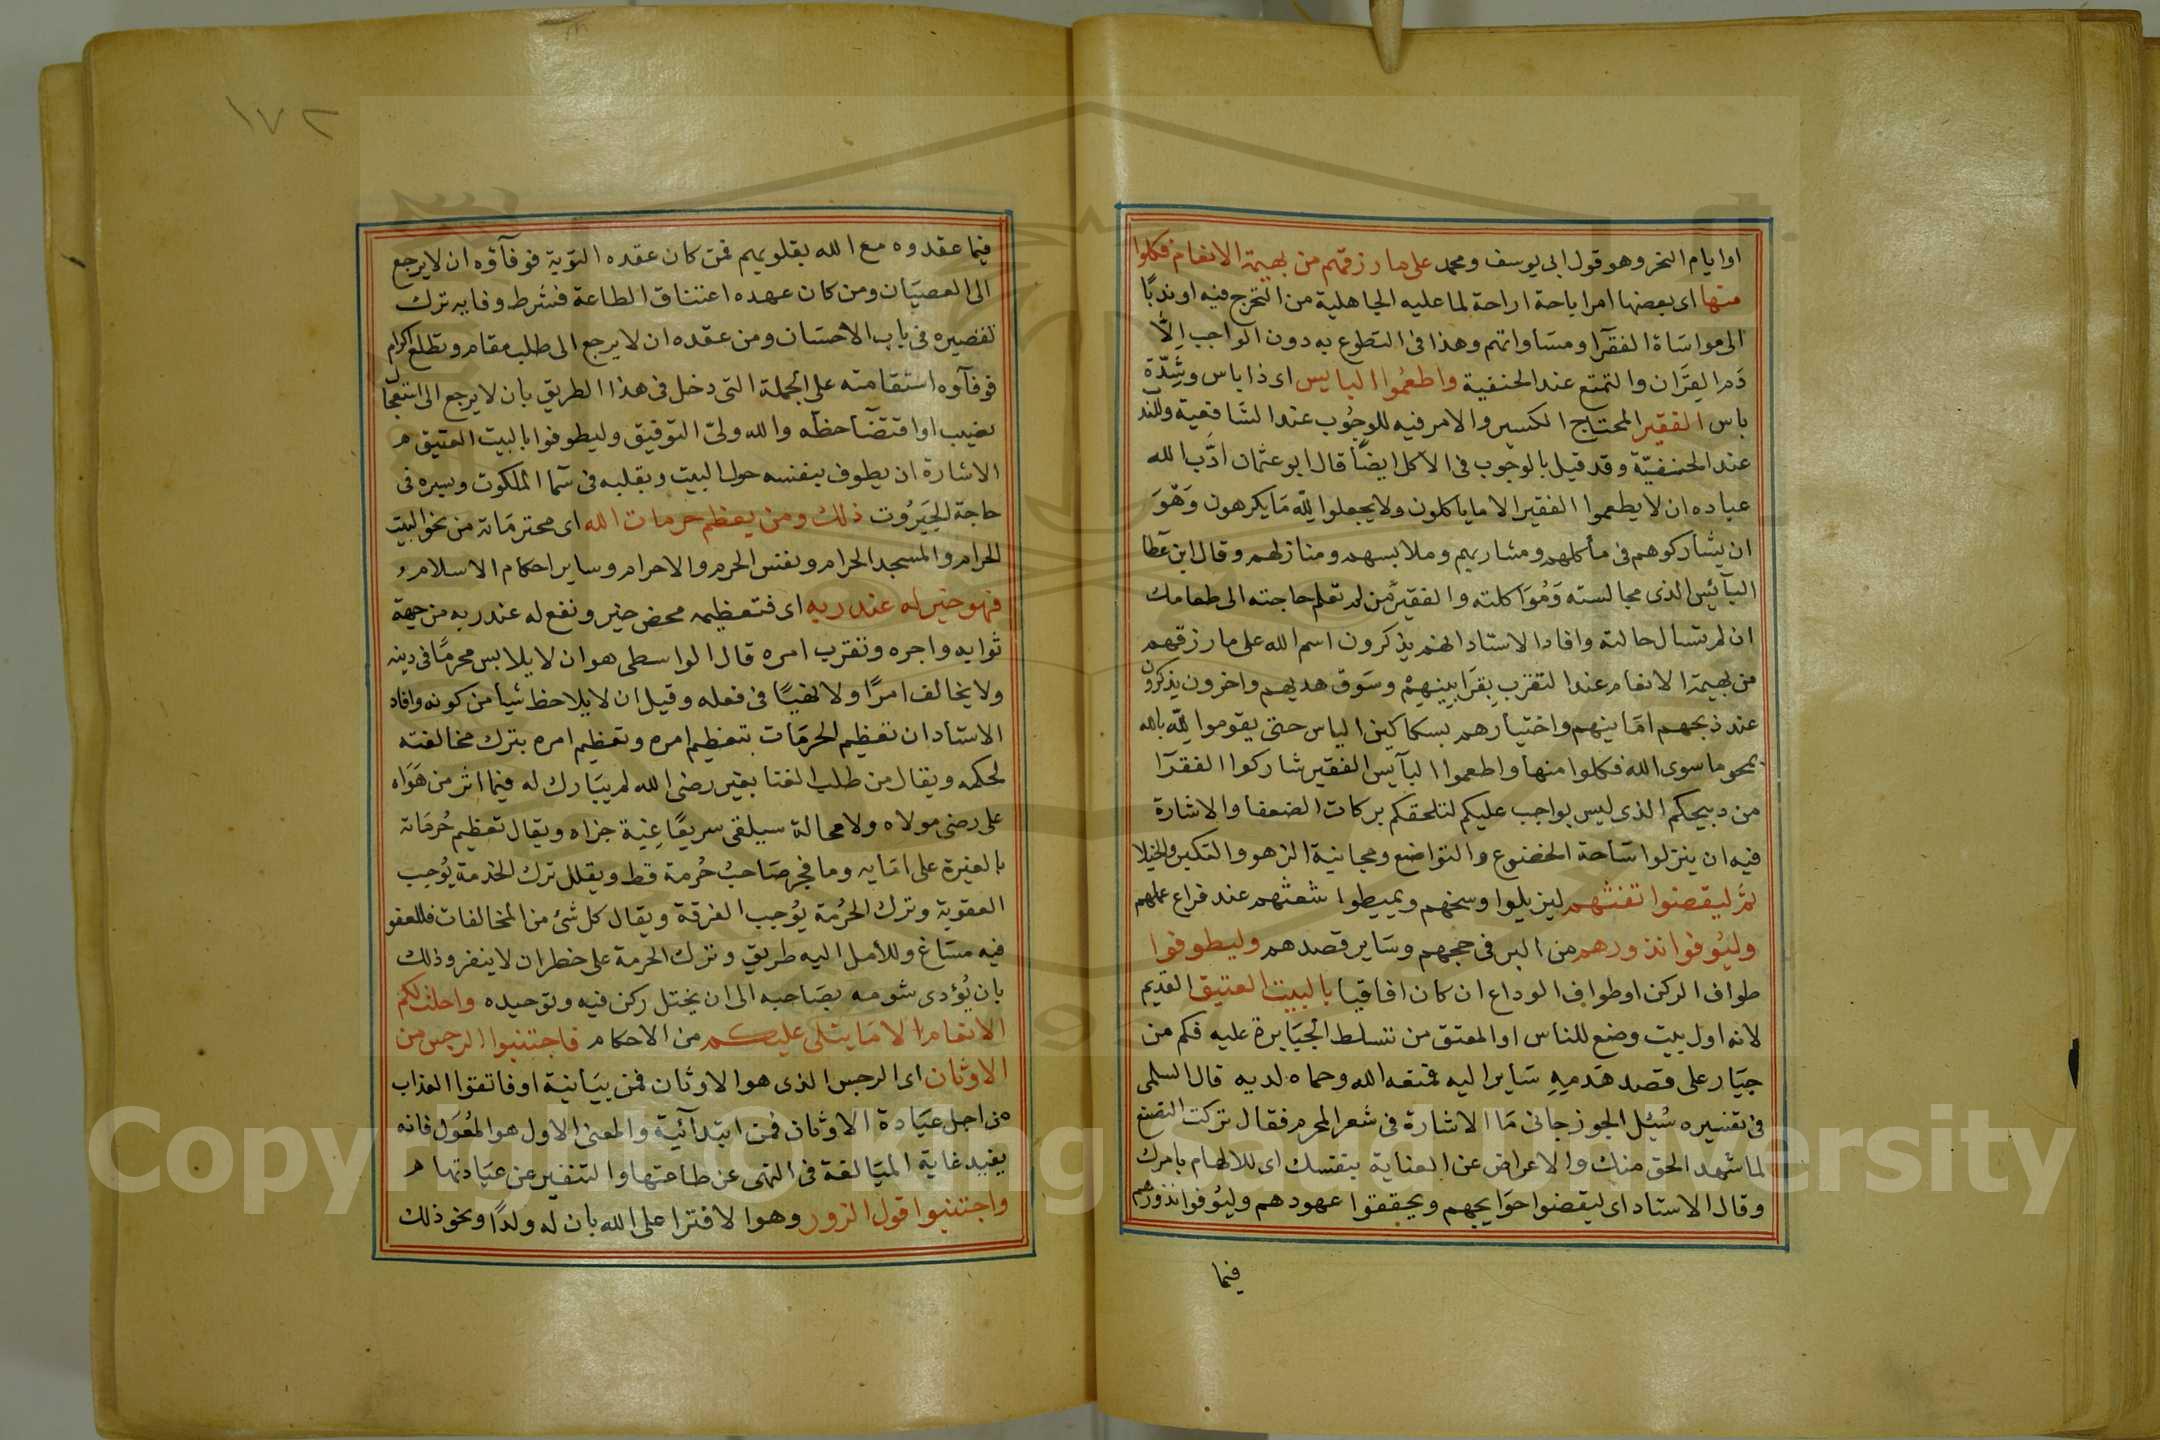 او ايام النحر وهو قول ابى يوسف ومحمد على ما رزقهم من بهيمة الانعام فكلوا
منها اى بعضها امر اباحة اراحة لما عليه الجاهلية من التحرج فيه او ندبًا
الى مواسَاة الفقرآ ومسَاواتهم وهذا فى التطوع به دون الواجب اِلّا
دَم القِرَان والتمتع عند الحنفية واطعمُوا البايس اى ذا باس وشِدّة
باس الفقير المحتاج الكسير والامر فيه للوجُوب عند الشافعية وللند
عند الحنفيّة وقد قيل بالوجوب فى الاكل ايضًا قال ابو عثمان ادَّب الله
عباده ان لا يطعموا الفقير الا ما ياكلون ولا يجعلوا لِلّه مَا يكرهون وَهُوَ
ان يشاركوهم فى مأكلهم ومشاربهم وملابسهم ومنازلهم وقال ابن عطا
البآئس الذى مجالسته وَمُوَاكلته والفقير من لم تعلم حاجته الى طعامك
ان لم تسأل حالته وافاد الاستاد انهم يذكرون اسم الله على ما رزقهم
من بهيمة الانعام عند التقرب بِقرَابينِهِمْ وسَوق هديهم واخرون يذكرون
عند ذبحهم امَانيهم واختيارهم بسكاكين الياس حتى يقوموا لِلّه بالله
بمحو ما سوى الله فكلوا منها واطعموا البآيس الفقير شاركوا الفقرآ
من دبيحكم الذى ليس بواجب عليكم لتلحقكم بركات الضعفا والاشارة
فيه ان ينزلوا سَاحة الخضوع والتواضع ومجانبة الزهو والتكبر والخيلا
ثمَّ ليقضوا تفثهم ليزيلوا وسخهم ويميطوا شعثهم عند فراع عملهم
وليُوفوا نذورهم من البر فى حجهم وسَاير قصدهم وليطوفوا
طواف الركن او طواف الوداع ان كان افاقيا بالبيت العتيق القديم
لانه اول بيت وضع للناس او المعتق من تسلط الجبَابرة عليه فكم من
جبَار على قصد هَدمِهِ سَاير اليه فمنعه الله وحماه لديه قال السلمى
فى تفسيره سُئِل الجوزجانى مَا الاشارة فى شعر المحرم فقال تركت التصنع
لما شهد الحق منك والاعراض عن العناية بنفسك اى للالهام بامرك
وقال الاستاد اى ليقضوا حوَايجهم ويحققوا عهودهم وليُوفوا نذورهم
فيما
١٧٢
فيما عقدوه مع الله بقلوبهم فمن كان عقده التوبة فوفآؤه ان لا يرجع
الى العصيَان ومن كان عهده اعتناق الطاعة فشرط وفايه ترك
تقصيره فى باب الاحسَان ومن عقده ان لا يرجع الى طلب مقام وتطلع اكرام
فوفآوه استقامته على الجملة التى دخل فى هذا الطريق بان لا يرجع الى استعجال
نصيب او اقتضآ حظه والله ولىّ التوفيق وليطوفوا بالبيت العتيق
الاشارة ان يطوف بنفسه حول البيت وبقلبه فى سَما الملكوت وبسره فى
حاجة الجَبَرُوت ذلك ومن يعظم حرمات الله اى محترمَاته من نحو البيت
الحرام والمسجد الحرام ونفس الحرم والاحرام وساير احكام الاسلام
فهو خير له عند ربه اى فتعظيمه محض خير ونفع له عند ربه من جهة
ثوابه واجره وتقرب امره قال الواسطى هو ان لا يلابس محرمًا فى دينه
ولا يخالف امرًا ولا نهيًا فى فعله وقيل ان لا يلاحظ شيأ من كونه وافاد
الاستاد ان تعظيم الحرمَات بتعظيم امره وتعظيم امره بترك مخالفته
لحكمه ويقال من طلب الغنا بغير رضى الله لم يبَارك له فيما اثر من هَوَاه
على رضى مولاه ولا محالة سيلقى سريعًا غِبَّة جزاه ويقال تعظيم حُرمَاته
بالغيرة على امَايه وما فجر صَاحبُ حُرمة قط ويقال ترك الخدمة يُوجب
العقوبة وترك الحرُمة يُوجب الفرقة ويقال كل شئ من المخالفات فللعفو
فيه مسَاغ وللأمل اليه طريق وترك الحرمة على خطر ان لا ينفر وذلك
بان يُؤدى شومه بصَاحبه الى ان يختل ركن فيه وتوحيده واحلت لكم
الانعام الا مَا يتلى عليكم من الاحكام فاجتنبوا الرجس من
الاوثان اى الرجس الذى هو الاوثان فمن بيَانية او فاتقوا العذاب
من اجل عبَادة الاوثان فمن ابتدآئية والمعنى الاول هو المُعَول فانه
يفيد غاية المبَالغة فى النهى عن طاعتها والتنفير عن عبَادتها
واجتنبوا قول الزور وهو الافترا على الله بان له ولدًا ونحو ذلك
Copyright © King Saud University